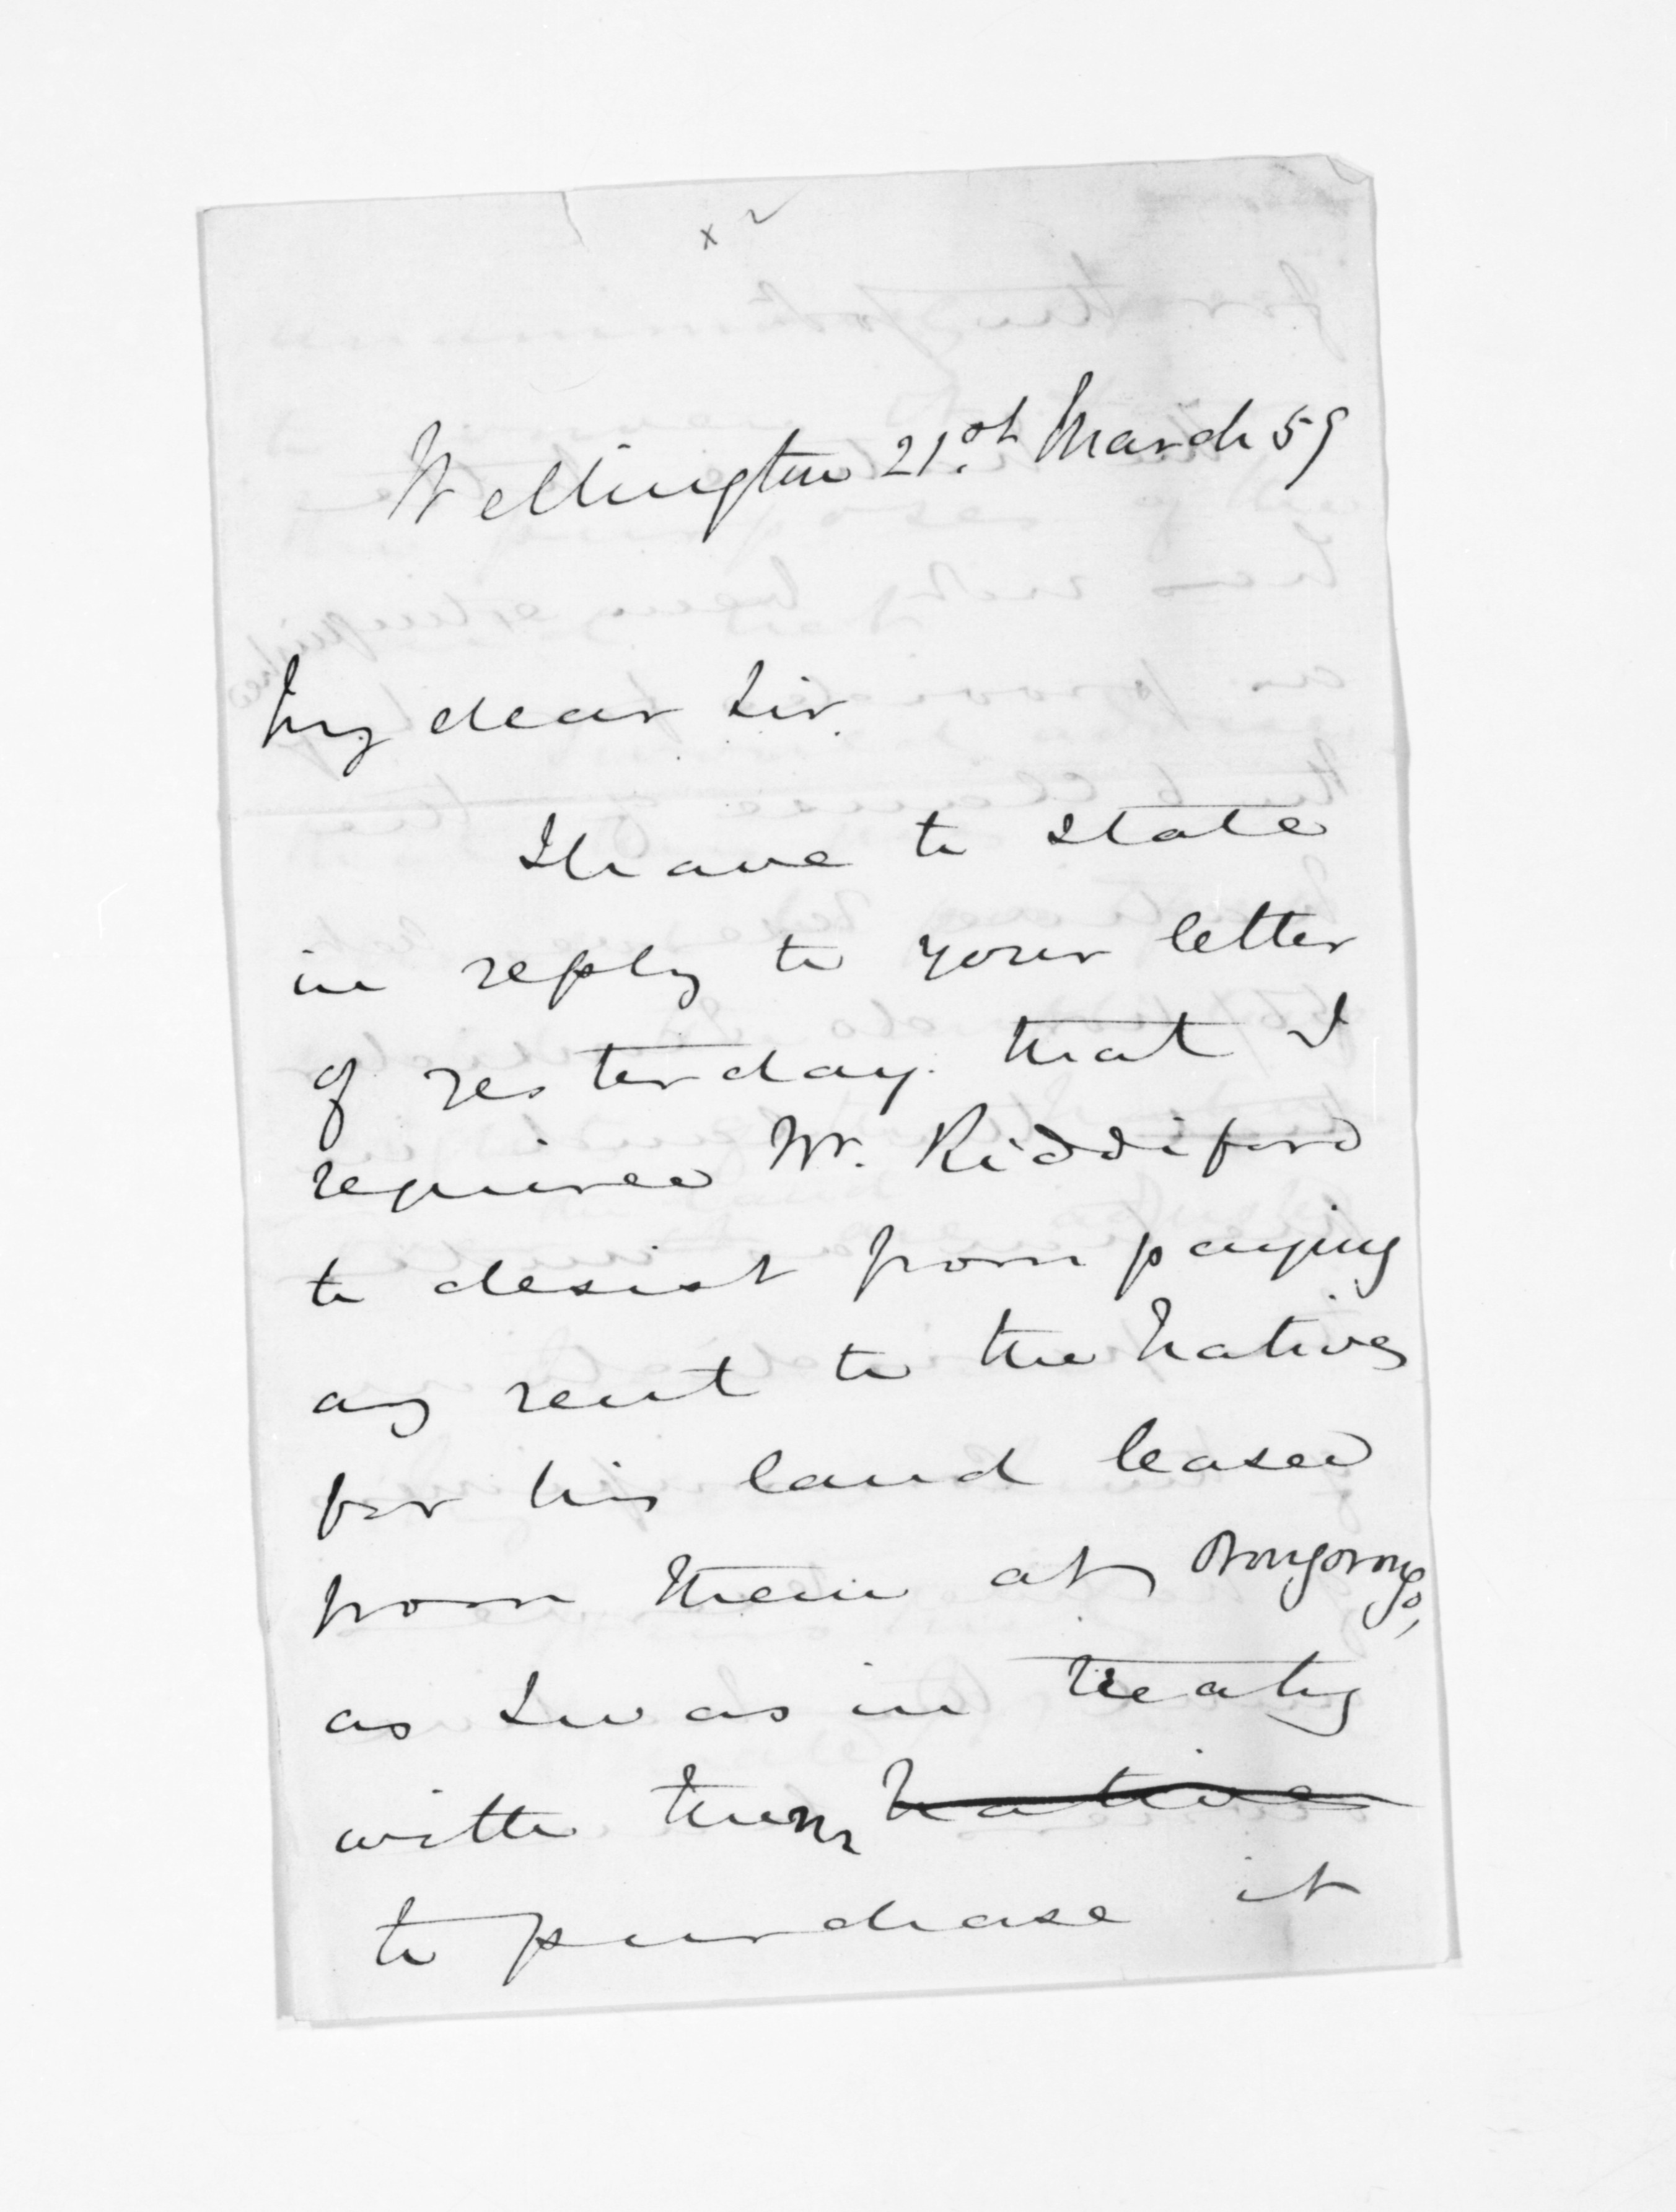 Wellington 21st March 59
My dear Sir.
I have to state
in reply to your letter
of yesterday. that I
required Mr. Riddiford
to desist from paying
any rent to the Natives
for his land leased
from them at Orongorongo,
as I was in treaty
with them Natives
to purchase it